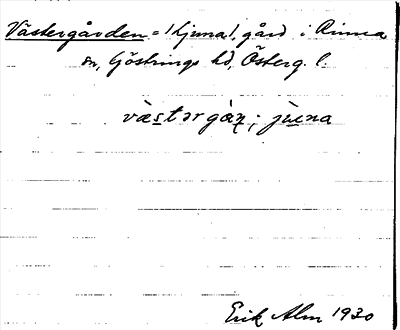 Västergården = (Ljuna), gård i Rinna
sn, Göstrings hd, Österg. l.
vä̀stərgàṇ; jùna
Erik Alm 1930